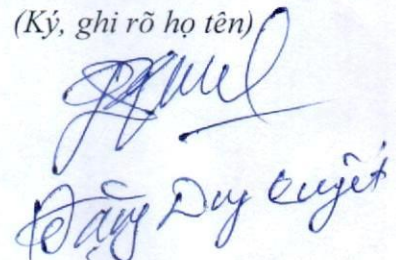 (Ký, ghi rõ họ tên)
Đặng Duy Quyết